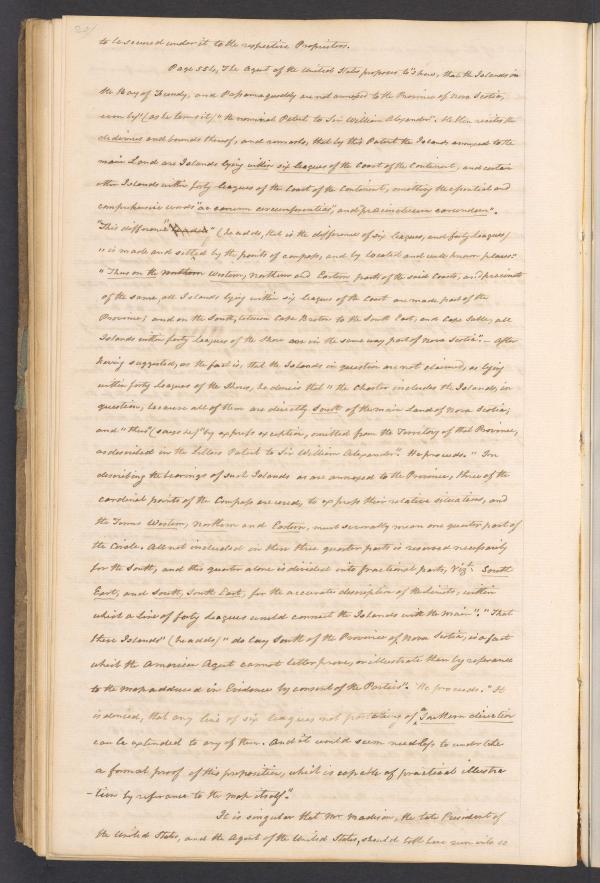 to be secured under it to the respective Proprietors.
Page 556, The Agent of the United States proposes to "shew, that the Islands in
the Bay of Fundy, and Passamaquoddy are not annexed to the Province of Nova Scotia,
even by" (as he terms it) "the nominal Patent to Sir William Alexander". He then recites the
and bounds thereof, and remarks, that by this Patent the Islands annexed to the
main Land are Islands lying within six leagues of the Coast of the Continent, and certain
other Islands within forty leagues of the Coast of the Continent, omitting the essential and
comprehensive words "ac earum circumferentias", and
"This difference" (he adds, that is the difference of six leagues, and forty leagues)
"is made and settled by the points of compass, and by located and well known places."
"Thus on the Western, Northern and Eastern parts of the said Coasts, and precincts
of the same, all Islands lying within six leagues of the Coast are made part of the
Province; and on the South, between Cape Breton to the South East, and Cape Sable, all
Islands within forty leagues of the Shore are in the same way, part of Nova Scotia". – After
having suggested, as the fact is, that the Islands in question are not claimed, as lying
within forty Leagues of the Shores, he denies that "the Charter includes the Islands, in
question, because all of them are directly South of the main Land of Nova Scotia;
and "thus" (says he) "by express exception, omitted from the Territory of that Province,
as described in the Letters Patent to Sir William Alexander". He proceeds. "In
describing the bearings of such Islands as are annexed to the Province, three of the
cardinal points of the Compass are used, to express their relative situations, and
the Terms Western, Northern and Eastern, must severally mean one quarter part of
the Circle. All not included in these three quarter parts is reserved necessarily
for the South, and this quarter alone is divided into fractional parts, Vizt: South
East, and South, South East, for the accurate description of the Limits, within
which a Line of forty Leagues would connect the Islands with the main". "That
these Islands" (he adds) "do lay South of the Province of Nova Scotia, is a fact
which the American Agent cannot better prove, or illustrate than by reference
to the map adduced in Evidence by consent of the Parties". He proceeds. "It
is denied, that any line of six leagues not partaking of a Southern direction
can be extended to any of them. And it would seem needless to undertake
a formal proof of this proposition, which is capable of practical illustra
-tion by reference to the map itself."
It is singular that Mr. Madison, the late President of
the United States, and the Agent of the United States, should both have run into so